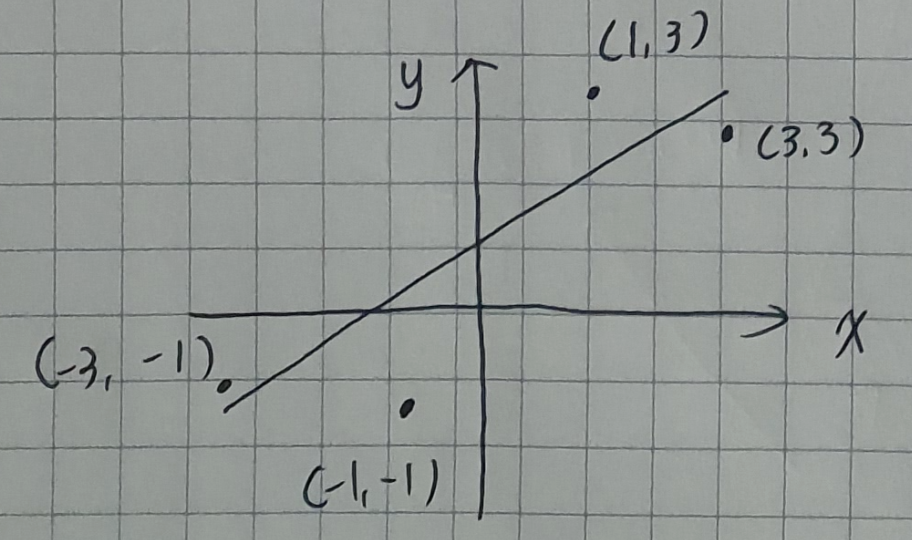 (1,3)
y
(3,3)
x
(-3, -1)
(-1,-1)